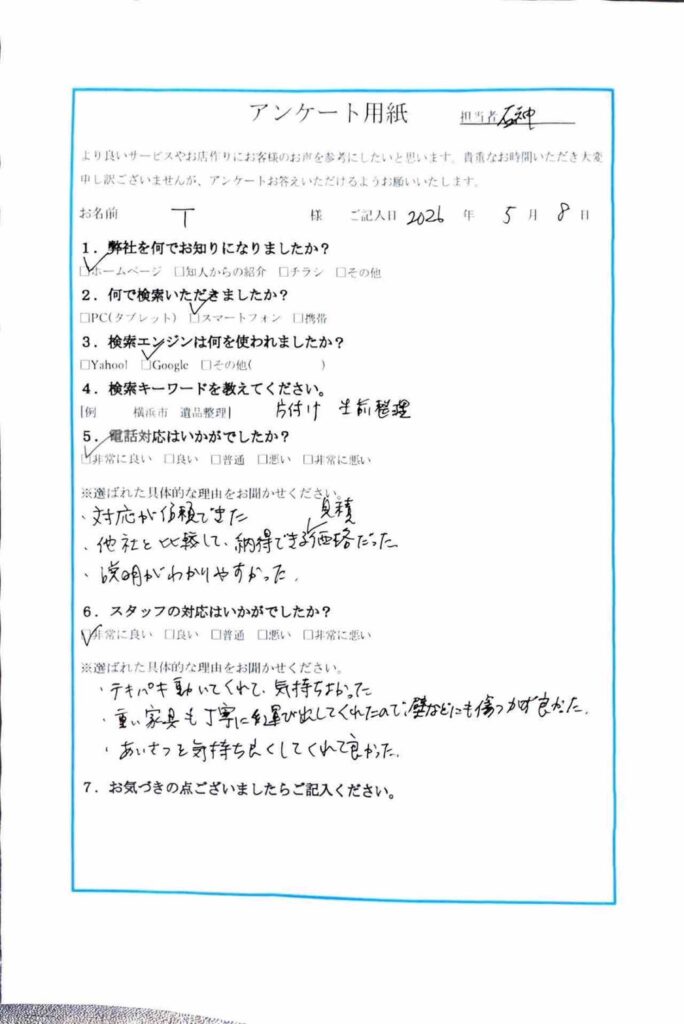 アンケート用紙
担当者 石神
より良いサービスやお店作りにお客様のお声を参考にしたいと思います。貴重なお時間いただき大変
申し訳ございませんが、アンケートお答えいただけるようお願いいたします。
お名前 T 様 ご記入日 2026 年 5 月 8 日
1．弊社を何でお知りになりましたか？
☑ホームページ □知人からの紹介 □チラシ □その他
2．何で検索いただきましたか？
□PC(タブレット) ☑スマートフォン □携帯
3．検索エンジンは何を使われましたか？
□Yahoo! ☑Google □その他( )
4．検索キーワードを教えてください。
[例 横浜市 遺品整理] 片付け 生前整理
5．電話対応はいかがでしたか？
☑非常に良い □良い □普通 □悪い □非常に悪い
※選ばれた具体的な理由をお聞かせください。
・対応が信頼できた
見積
・他社と比較して、納得できる価格だった
・説明がわかりやすかった.
6．スタッフの対応はいかがでしたか？
☑非常に良い □良い □普通 □悪い □非常に悪い
※選ばれた具体的な理由をお聞かせください。
・テキパキ動いてくれて、気持ちよかった
・重い家具も丁寧に運び出してくれたので、壁などにも傷つかず良かった.
・あいさつを気持ち良くしてくれて良かった.
7．お気づきの点ございましたらご記入ください。